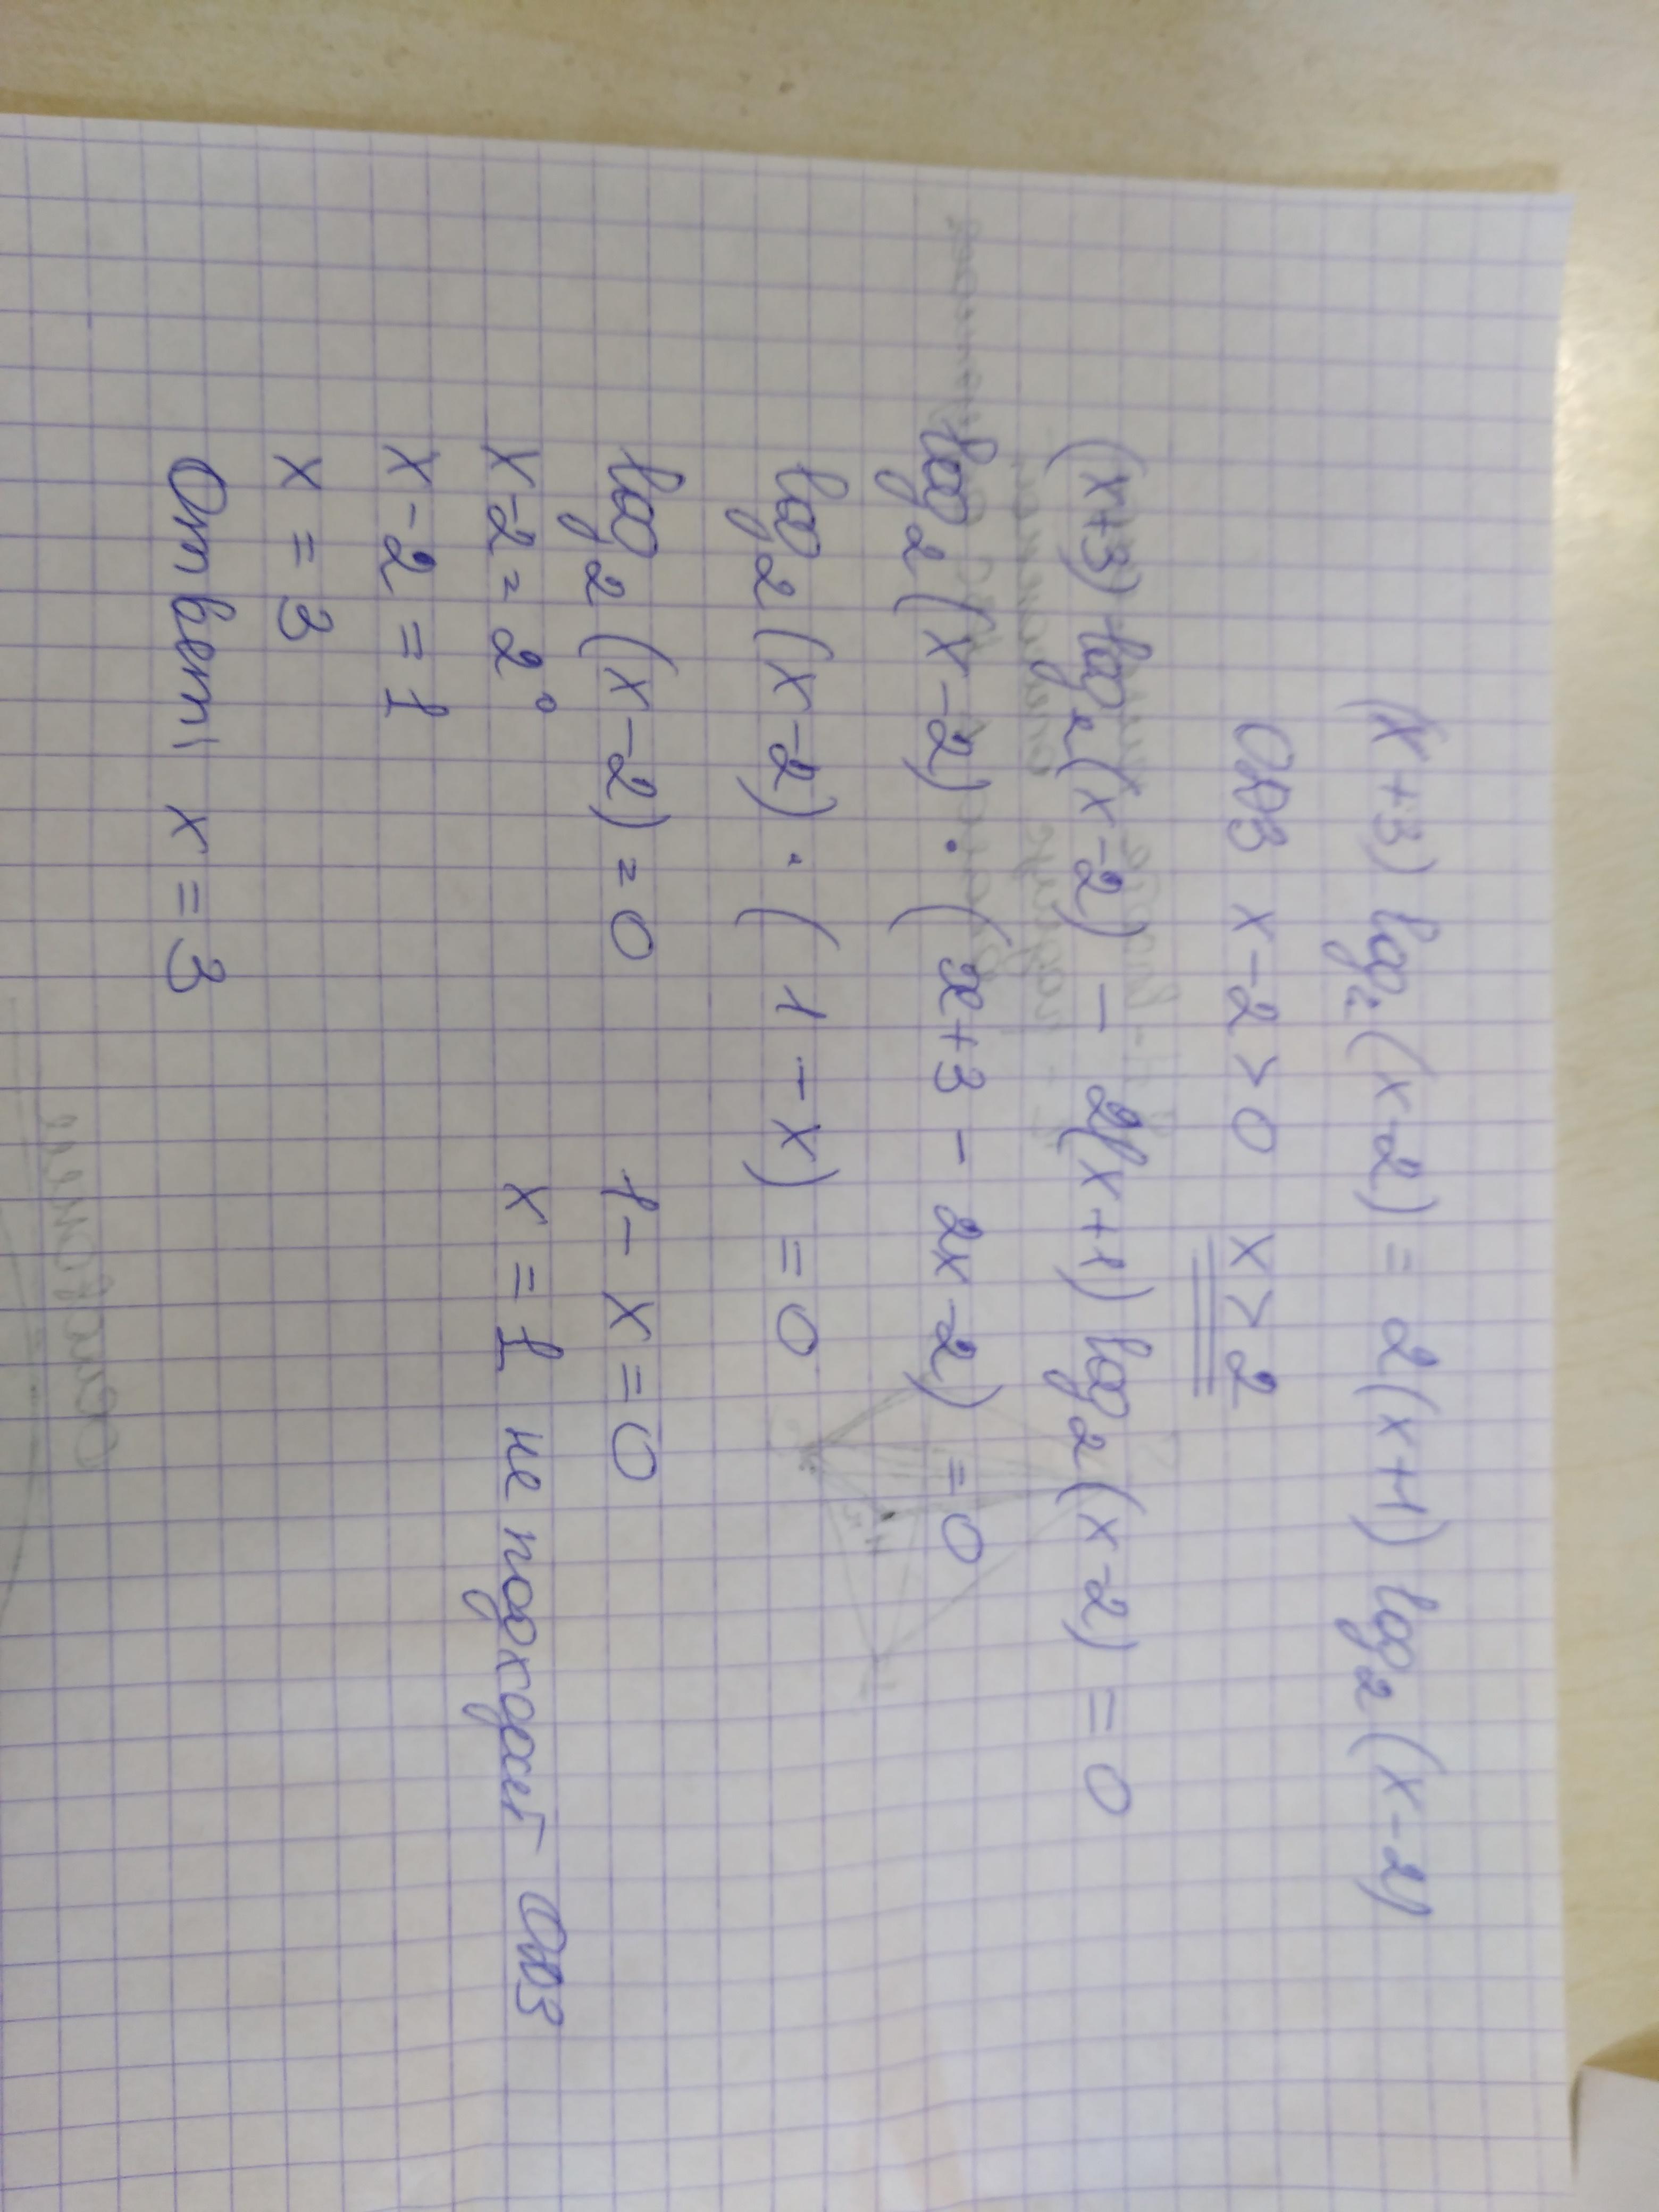 (x+3) log₂(x-2) = 2(x+1) log₂(x-2)
ОДЗ x-2>0 x>2
(x+3) log₂(x-2) - 2(x+1) log₂(x-2) = 0
log₂(x-2)·(x+3 - 2x-2) = 0
log₂(x-2)·(1-x) = 0
log₂(x-2)=0 1-x=0
x-2=2⁰ x=1 не подходит ОДЗ
x-2=1
x=3
Ответ: x=3